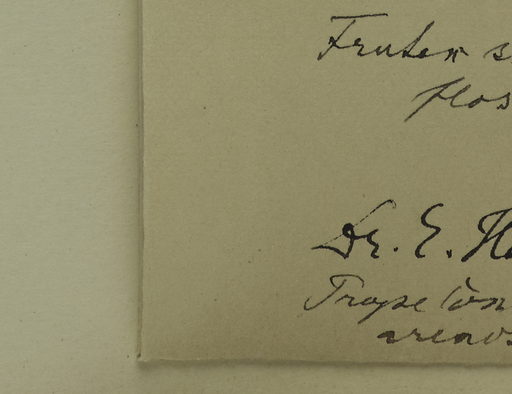 Frutex s
flos
Dr. E. Ha
Trope Con
arenos